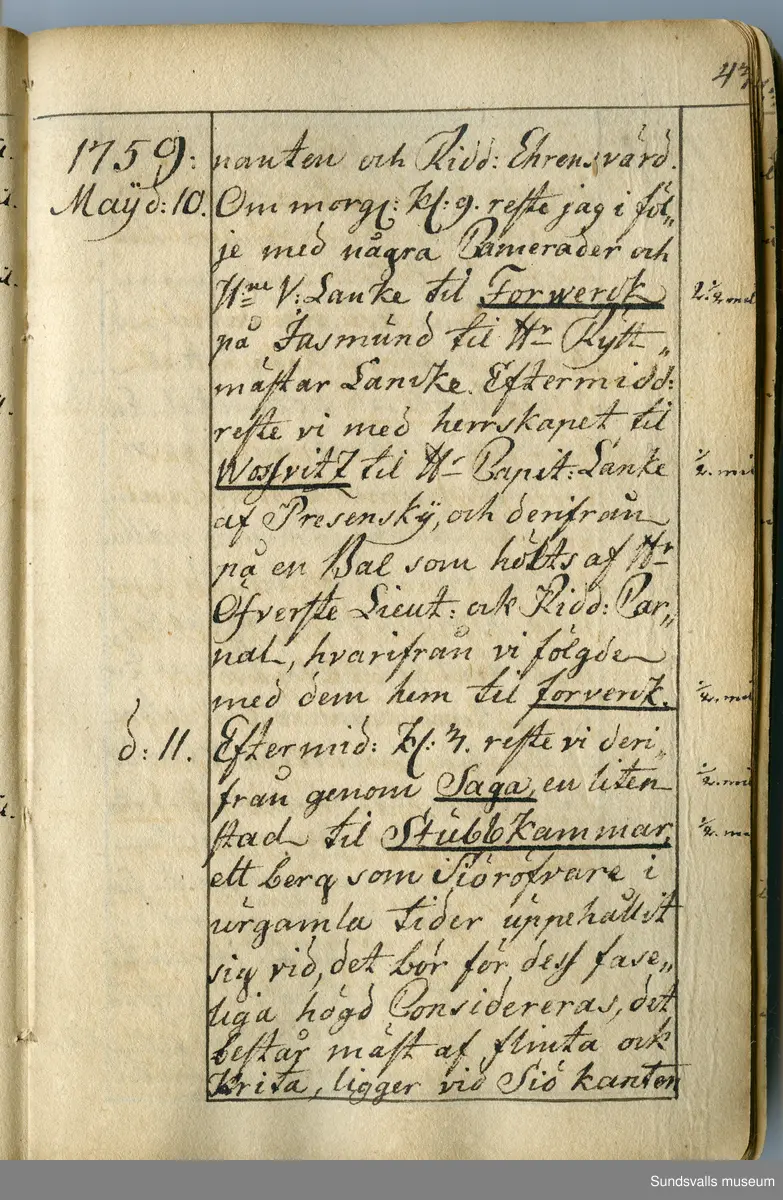 43
1759: nanten och Ridd: Ehrensvärd.
Maÿ d: 10. Om morg: Kl: 9. reste jag i föl„
je med några Camerader och
H:ne V: Lanke til Forwerck 2 1/2 mil
på Jasmund til Hr Rytt„
mästar Lancke. Eftermidd:
reste vi med herrskapet til
Wosvitz til Hr Capit: Lanke 1/2. mil
af Presenskÿ, och derifrån
på en Bal som hölts af Hr
Öfverste Lieut: ock Ridd: Car„
nal, hvarifrån vi fölgde
med dem hem til forverck. 1/2. mil
d: 11. Eftermid: Kl: 3. reste vi deri„
från genom Saga, en liten 1/2. mil
stad til Stubbkammar, 1/2. mil
ett berg som Siöröfvare i
urgamla tider uppehållit
sig vid, det bör för dess fase„
liga högd Considereras, det
består mäst af flinta ock
Krita, ligger vid Siö kanten
Sundsvalls museum